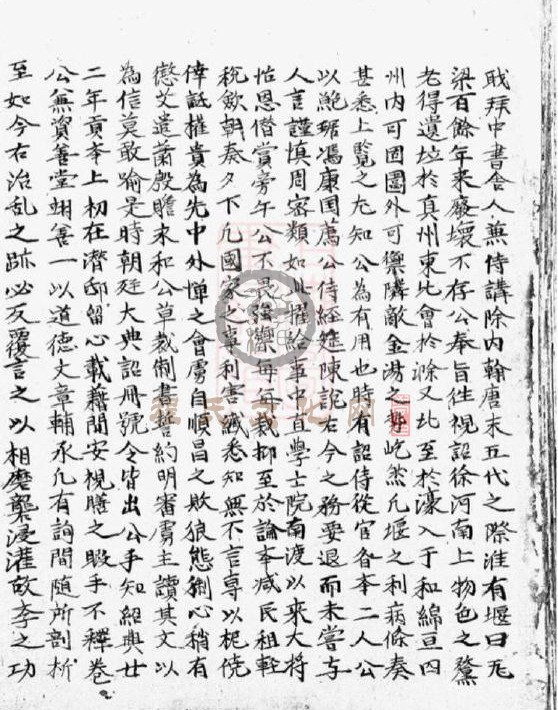 戢拜中書舍人兼侍講除内翰唐末五代之際淮有堰曰瓦
梁百餘年来廢壞不存公奉旨徃視詔徐河南上物色之
老得遺址於真州東比會於滁又北至於濠入于和綿亘四
州内可固圉外可禦隣敵金湯之 屹然凡堰之利病條奏
甚悉上覽之尤知公為有用也時有詔侍從官各奉二人公
以鮑琚馮康国薦公侍經筵陳説古今之務要退而未嘗与
人言謹慎周宻類如此擢給事中直學士院南渡以来大将
怙恩僣賞旁午公不畏强禦每每裁抑至於論奉减民租軽
税歛朝奏夕下凡國家之事利害纎悉知無不言専以
倖詆權貴為先中外憚之會虜自順昌之敗狼態猘心稍有
懲艾遣蕭殷瞻来和公草裁制書誓約明審虜主讀其文以
為信莫敢喻是時朝廷大典詔冊號令皆出公手知紹興廿
二年貢奉上初在濳邸留心載籍閒安視膳之暇手不釋巻
公兼資善堂翊善一以道徳文章輔承凡有詢問随所剖析
至如今古治乱之跡必反覆言之以相磨 浸灌故李之功